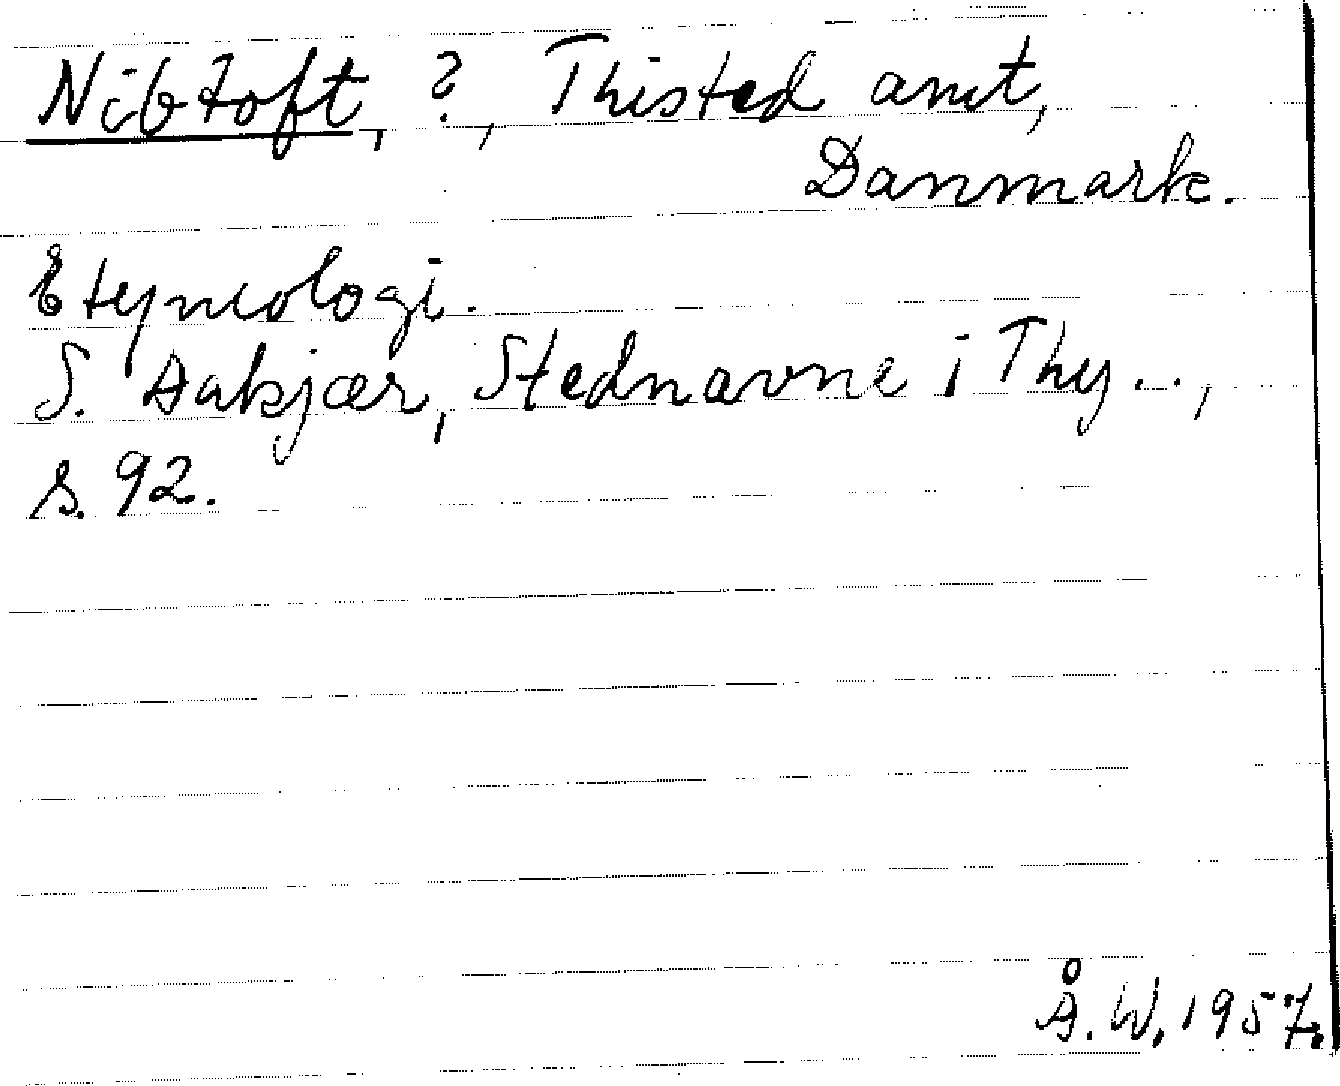 Nibtoft, ?, Thisted amt,
Danmark.
Etymologi.
S. Aakjær, Stednavne i Thy...,
s. 92.
Å. W. 1957.